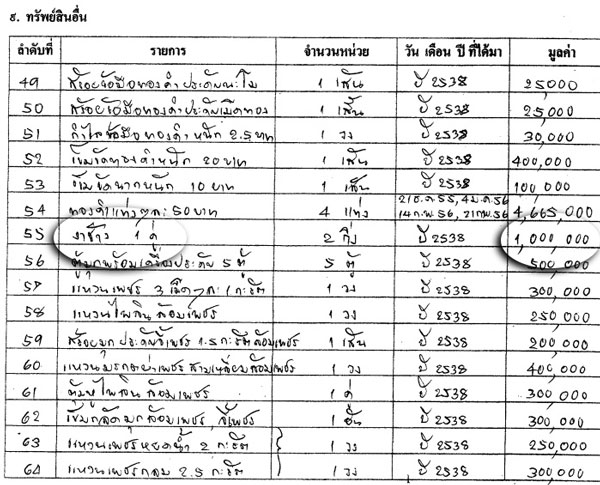 ๙. ทรัพย์สินอื่น
ลำดับที่ รายการ จำนวนหน่วย วัน เดือน ปี ที่ได้มา มูลค่า
49 สร้อยข้อมือทองคำประดับ 1 เส้น ปี 2538 25,000
50 สร้อยข้อมือทองคำประดับเม็ดทอง 1 เส้น ปี 2538 25,000
51 กำไลข้อมือทองคำ หนัก 2.5 บาท 1 วง ปี 2538 30,000
52 เข็มขัดทองคำหนัก 20 บาท 1 เส้น ปี 2538 400,000
53 เข็มขัดนากหนัก 10 บาท 1 เส้น ปี 2538 100,000
54 ทองคำแท่งๆละ 50 บาท 4 แท่ง 21ธ.ค.55, 4ม.ค.56 4,665,000
14ก.พ.56, 21ก.พ.56
55 งาช้าง 1 คู่ 2 กิ่ง ปี 2538 1,000,000
56 ตู้มุกพร้อมเครื่องประดับ 5 ตู้ 5 ตู้ ปี 2538 500,000
57 แหวนเพชร 3 เม็ดๆละ 1 กะรัต 1 วง ปี 2538 300,000
58 แหวนไพลินล้อมเพชร 1 วง ปี 2538 250,000
59 สร้อยมุกประดับจี้เพชร 1.5 กะรัตล้อมเพชร 1 เส้น ปี 2538 200,000
60 แหวนมรกตบ่าเพชรสามเหลี่ยมล้อมเพชร 1 วง ปี 2538 400,000
61 ตุ้มหูไพลินล้อมเพชร 1 คู่ ปี 2538 300,000
62 เข็มกลัดมุกล้อมเพชร, จี้เพชร 1 อัน ปี 2538 300,000
63 แหวนเพชรหยดน้ำ 2 กะรัต 1 วง ปี 2538 250,000
64 แหวนเพชรกลม 2.5 กะรัต 1 วง ปี 2538 300,000